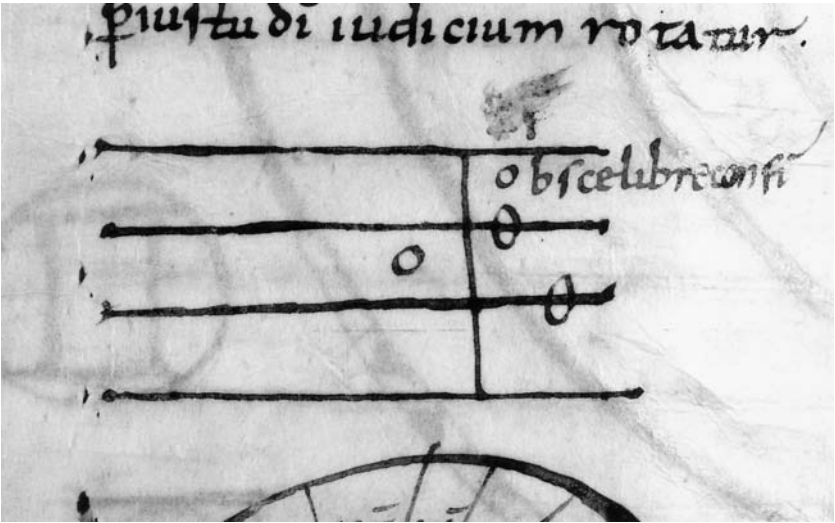 p̄ iustu dī iudicium rotatur.
obscelibreconfī